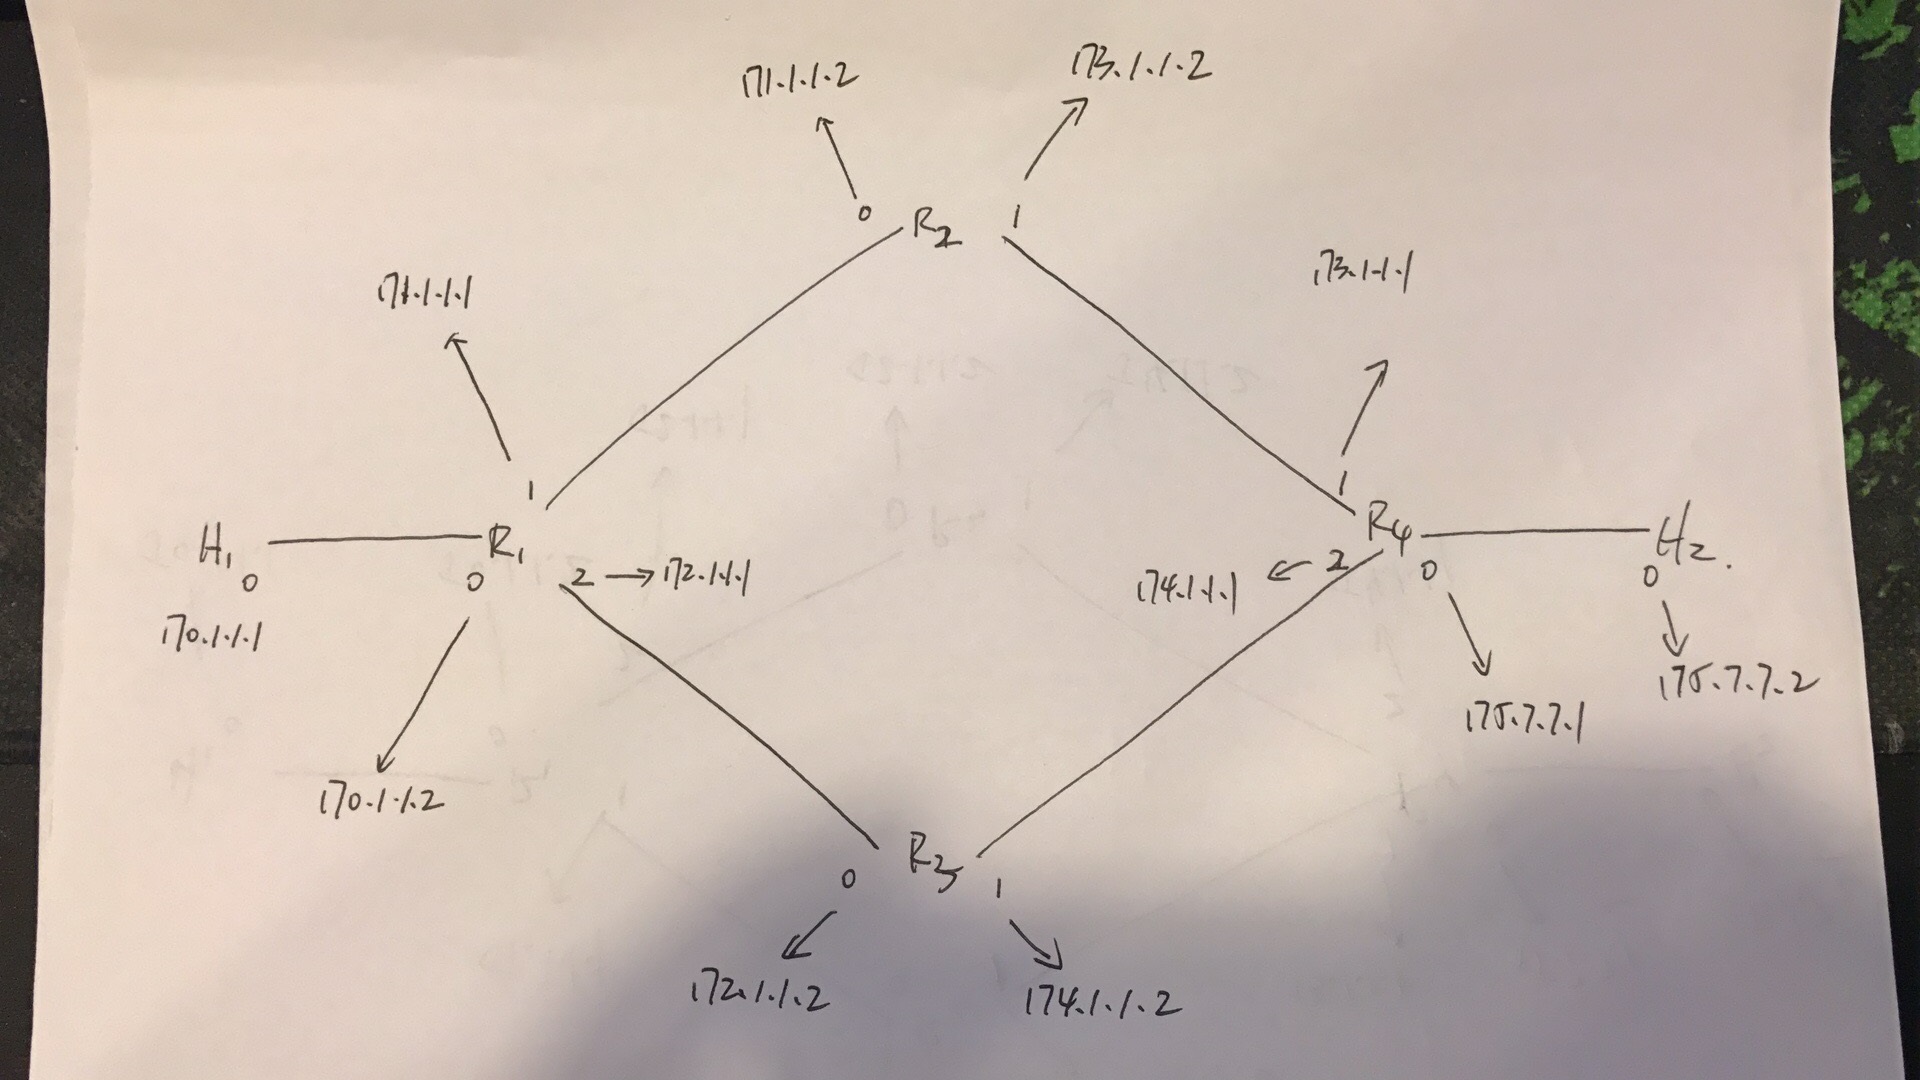 171.1.1.2
173.1.1.2
0 R2 1
171.1.1.1
173.1.1.1
1
1
H1 0
R1 0
2 → 172.1.1.1
174.1.1.1 ← 2
R4 0
H2. 0
170.1.1.1
175.7.7.2
175.7.7.1
170.1.1.2
0 R3 1
172.1.1.2
174.1.1.2